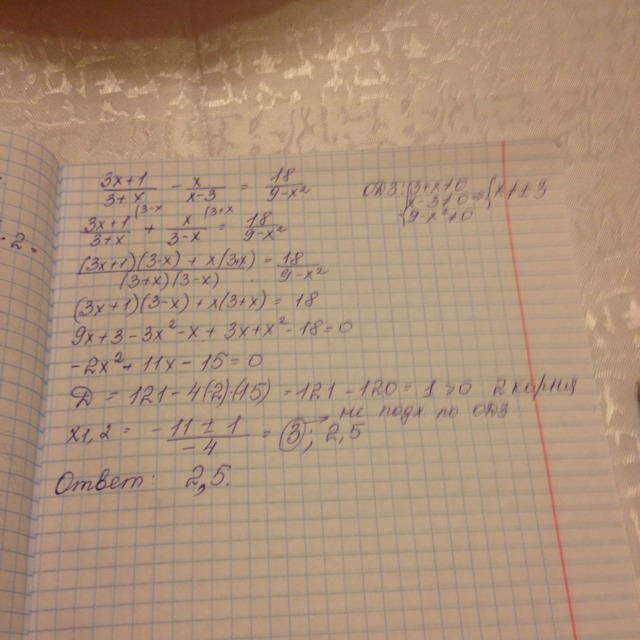 (3x+1)/(3+x) - x/(x-3) = 18/(9-x²) ОДЗ: {3+x≠0 x-3≠0 9-x²≠0 = {x≠±3
(3x+1)/(3+x) (3-x + x/(3-x) (3+x = 18/(9-x²)
((3x+1)(3-x)+x(3x))/((3+x)(3-x)) = 18/(9-x²)
(3x+1)(3-x)+x(3+x) = 18
9x+3-3x²-x+3x+x²-18=0
-2x²+11x-15=0
Д = 121-4(2)(15) = 121-120 = 1 >0 2 корня
x1,2 = (-11±1)/(-4) = 3; 2,5 → не подх по ОДЗ
Ответ: 2,5.